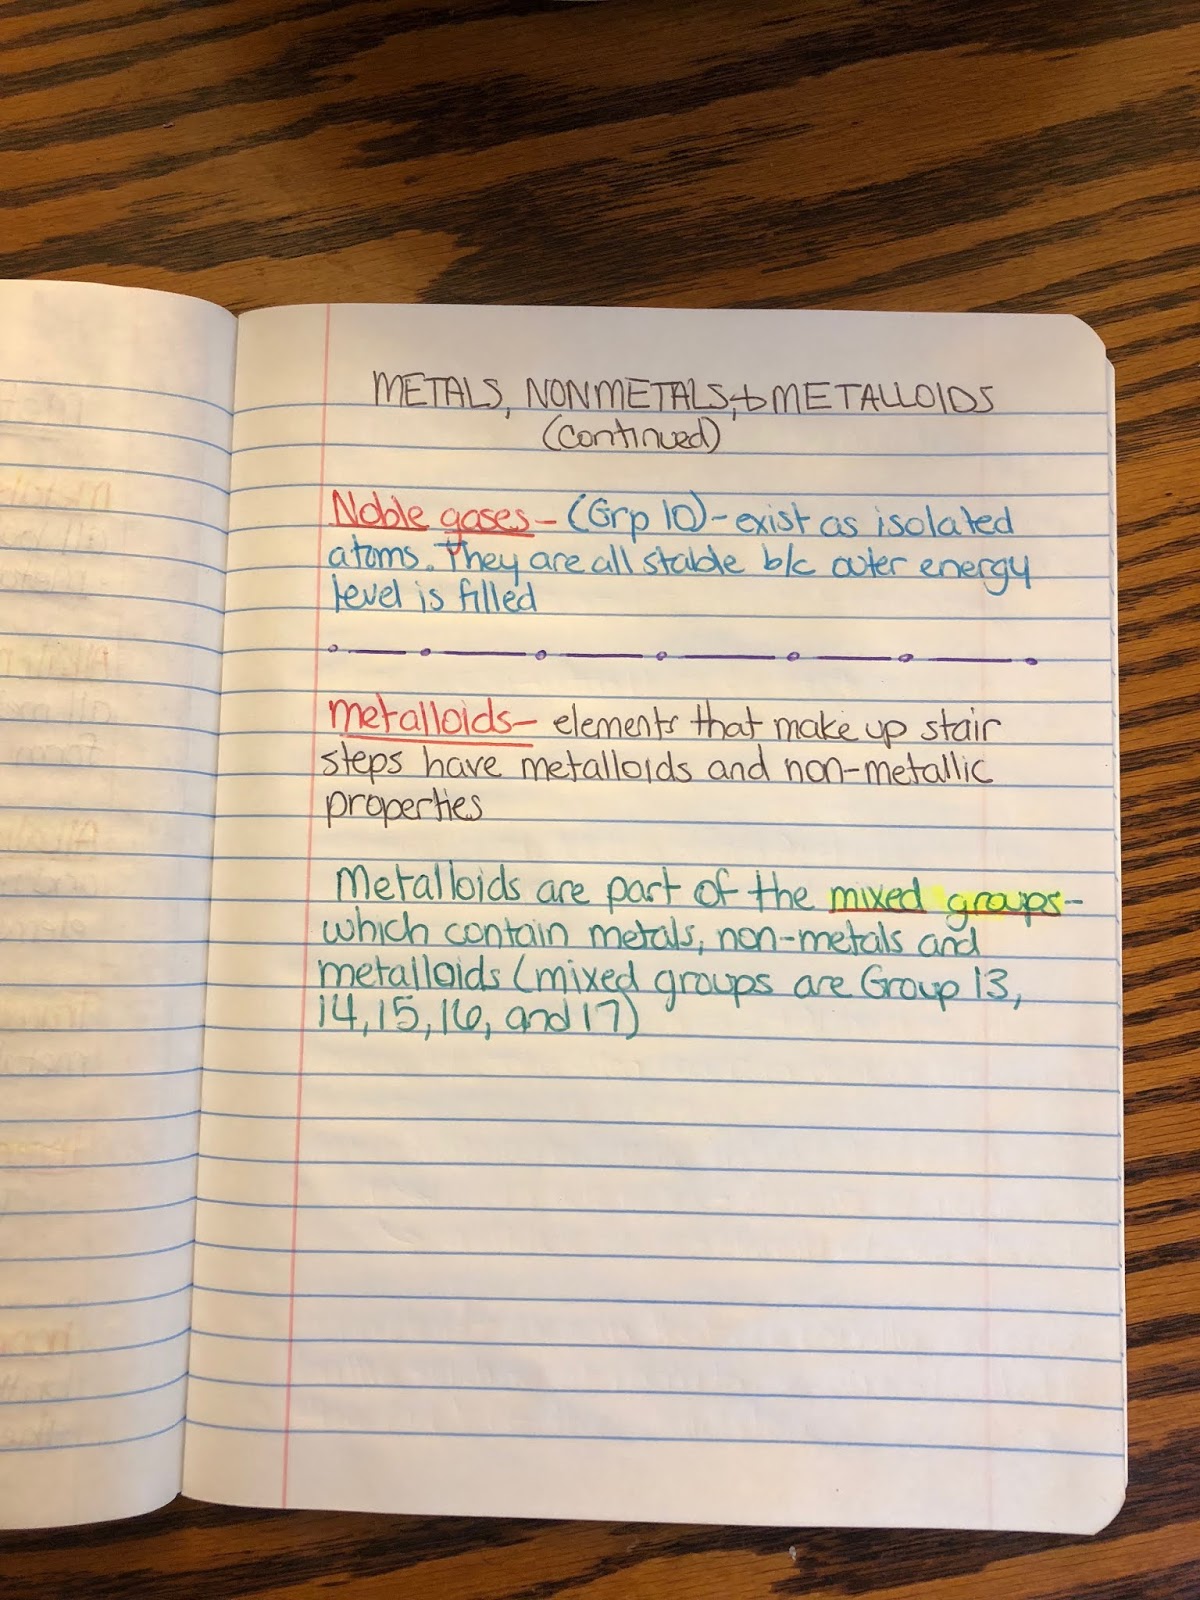 METALS, NONMETALS, + METALLOIDS
(continued)
Noble gases - (Grp 10) - exist as isolated
atoms. They are all stable b/c outer energy
level is filled
metalloids - elements that make up stair
steps have metalloids and non-metallic
properties
Metalloids are part of the mixed groups -
which contain metals, non-metals and
metalloids (mixed groups are Group 13,
14, 15, 16, and 17)